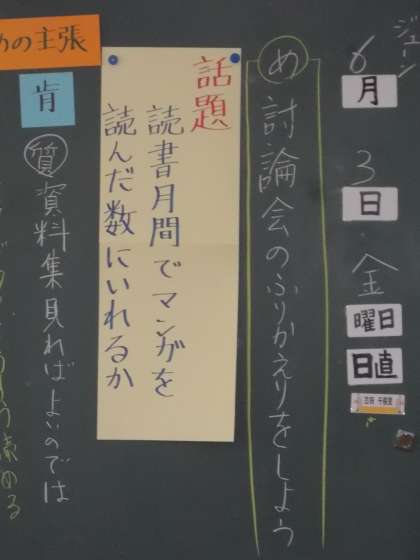 ジューン
6月3日金曜日
日直
め 討論会のふりかえりをしよう
話題
読書月間でマンガを
読んだ数にいれるか
の主張
肯
質 資料集見ればよいのでは